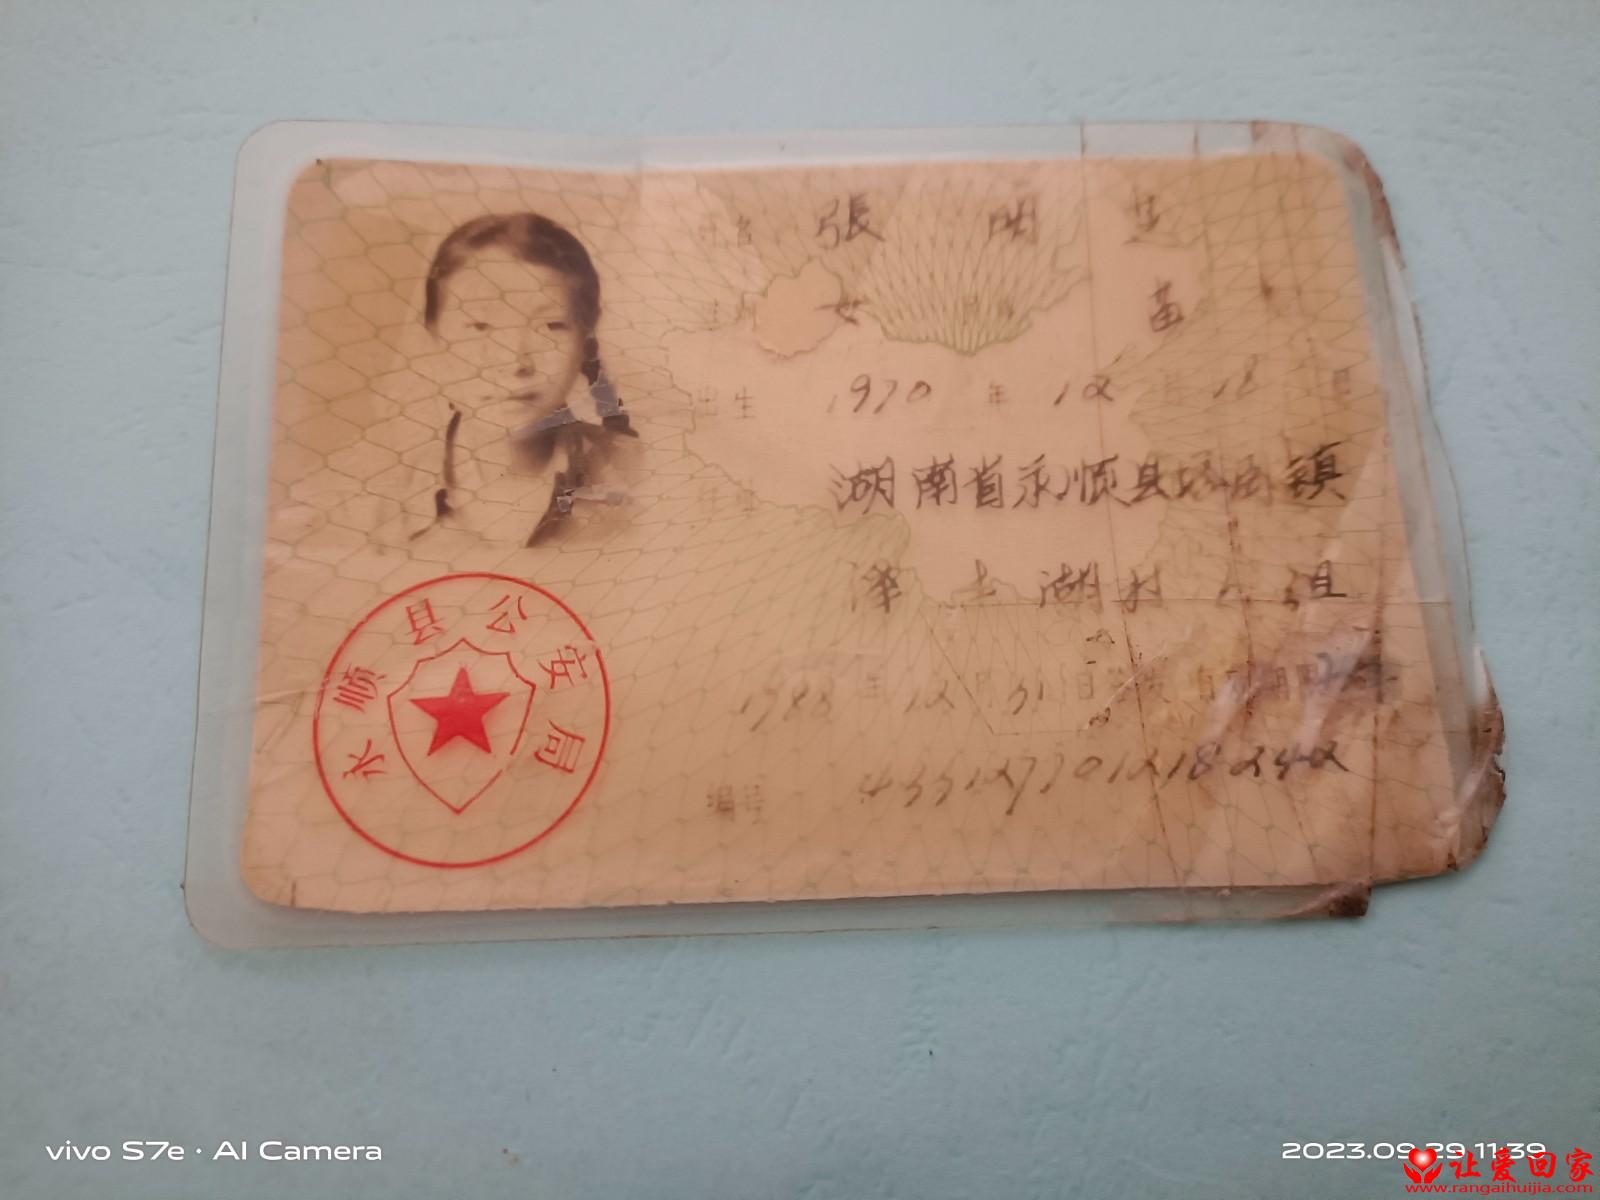 姓名 張 明
性别 女 民族 苗
出生 1970 年 12 月 18 日
住址 湖南省永顺县塔卧镇
泽土湖村 组
1988年12月31日签发 有效期限
编号 433127701218242
永顺县公安局
vivo S7e · AI Camera
2023.09.29 11:39
让爱回家
www.rangaihuijia.com